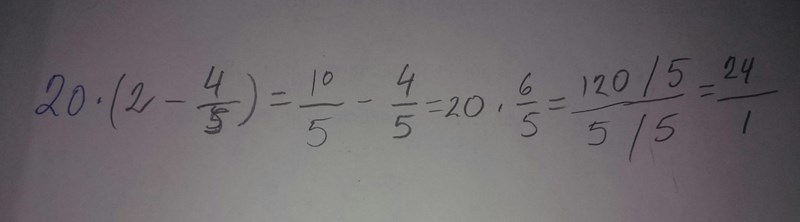 20·(2 - 4/5) = 10/5 - 4/5 = 20 · 6/5 = 120/5 / 5/5 = 24/1